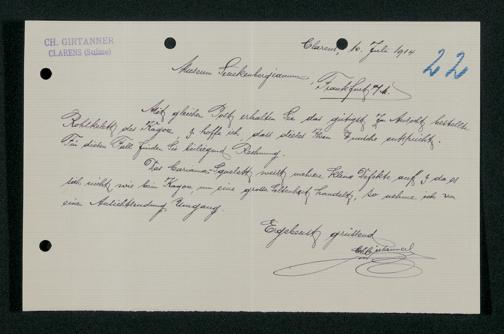 CH. GIRTANNER
CLARENS (Suisse)
Clarens, 10. Juli 1914
22
Museum Senckenbergianum, Frankfurt a/M.
Mit gleicher Post erhalten Sie das gütigst zur Ansicht bestellte
Rohskelett des Kagou, & hoffe ich, dass dieses Ihren Wünschen entspricht.
Für diesen Fall finden Sie beiliegend Rechnung.
Das Cariama-Squelett weist mehrere kleine Defekte auf, & da es
sich nicht wie beim Kagou um eine grosse Seltenheit handelt, so nehme ich von
einer Ansichtsendung Umgang.
Ergebenst grüssend